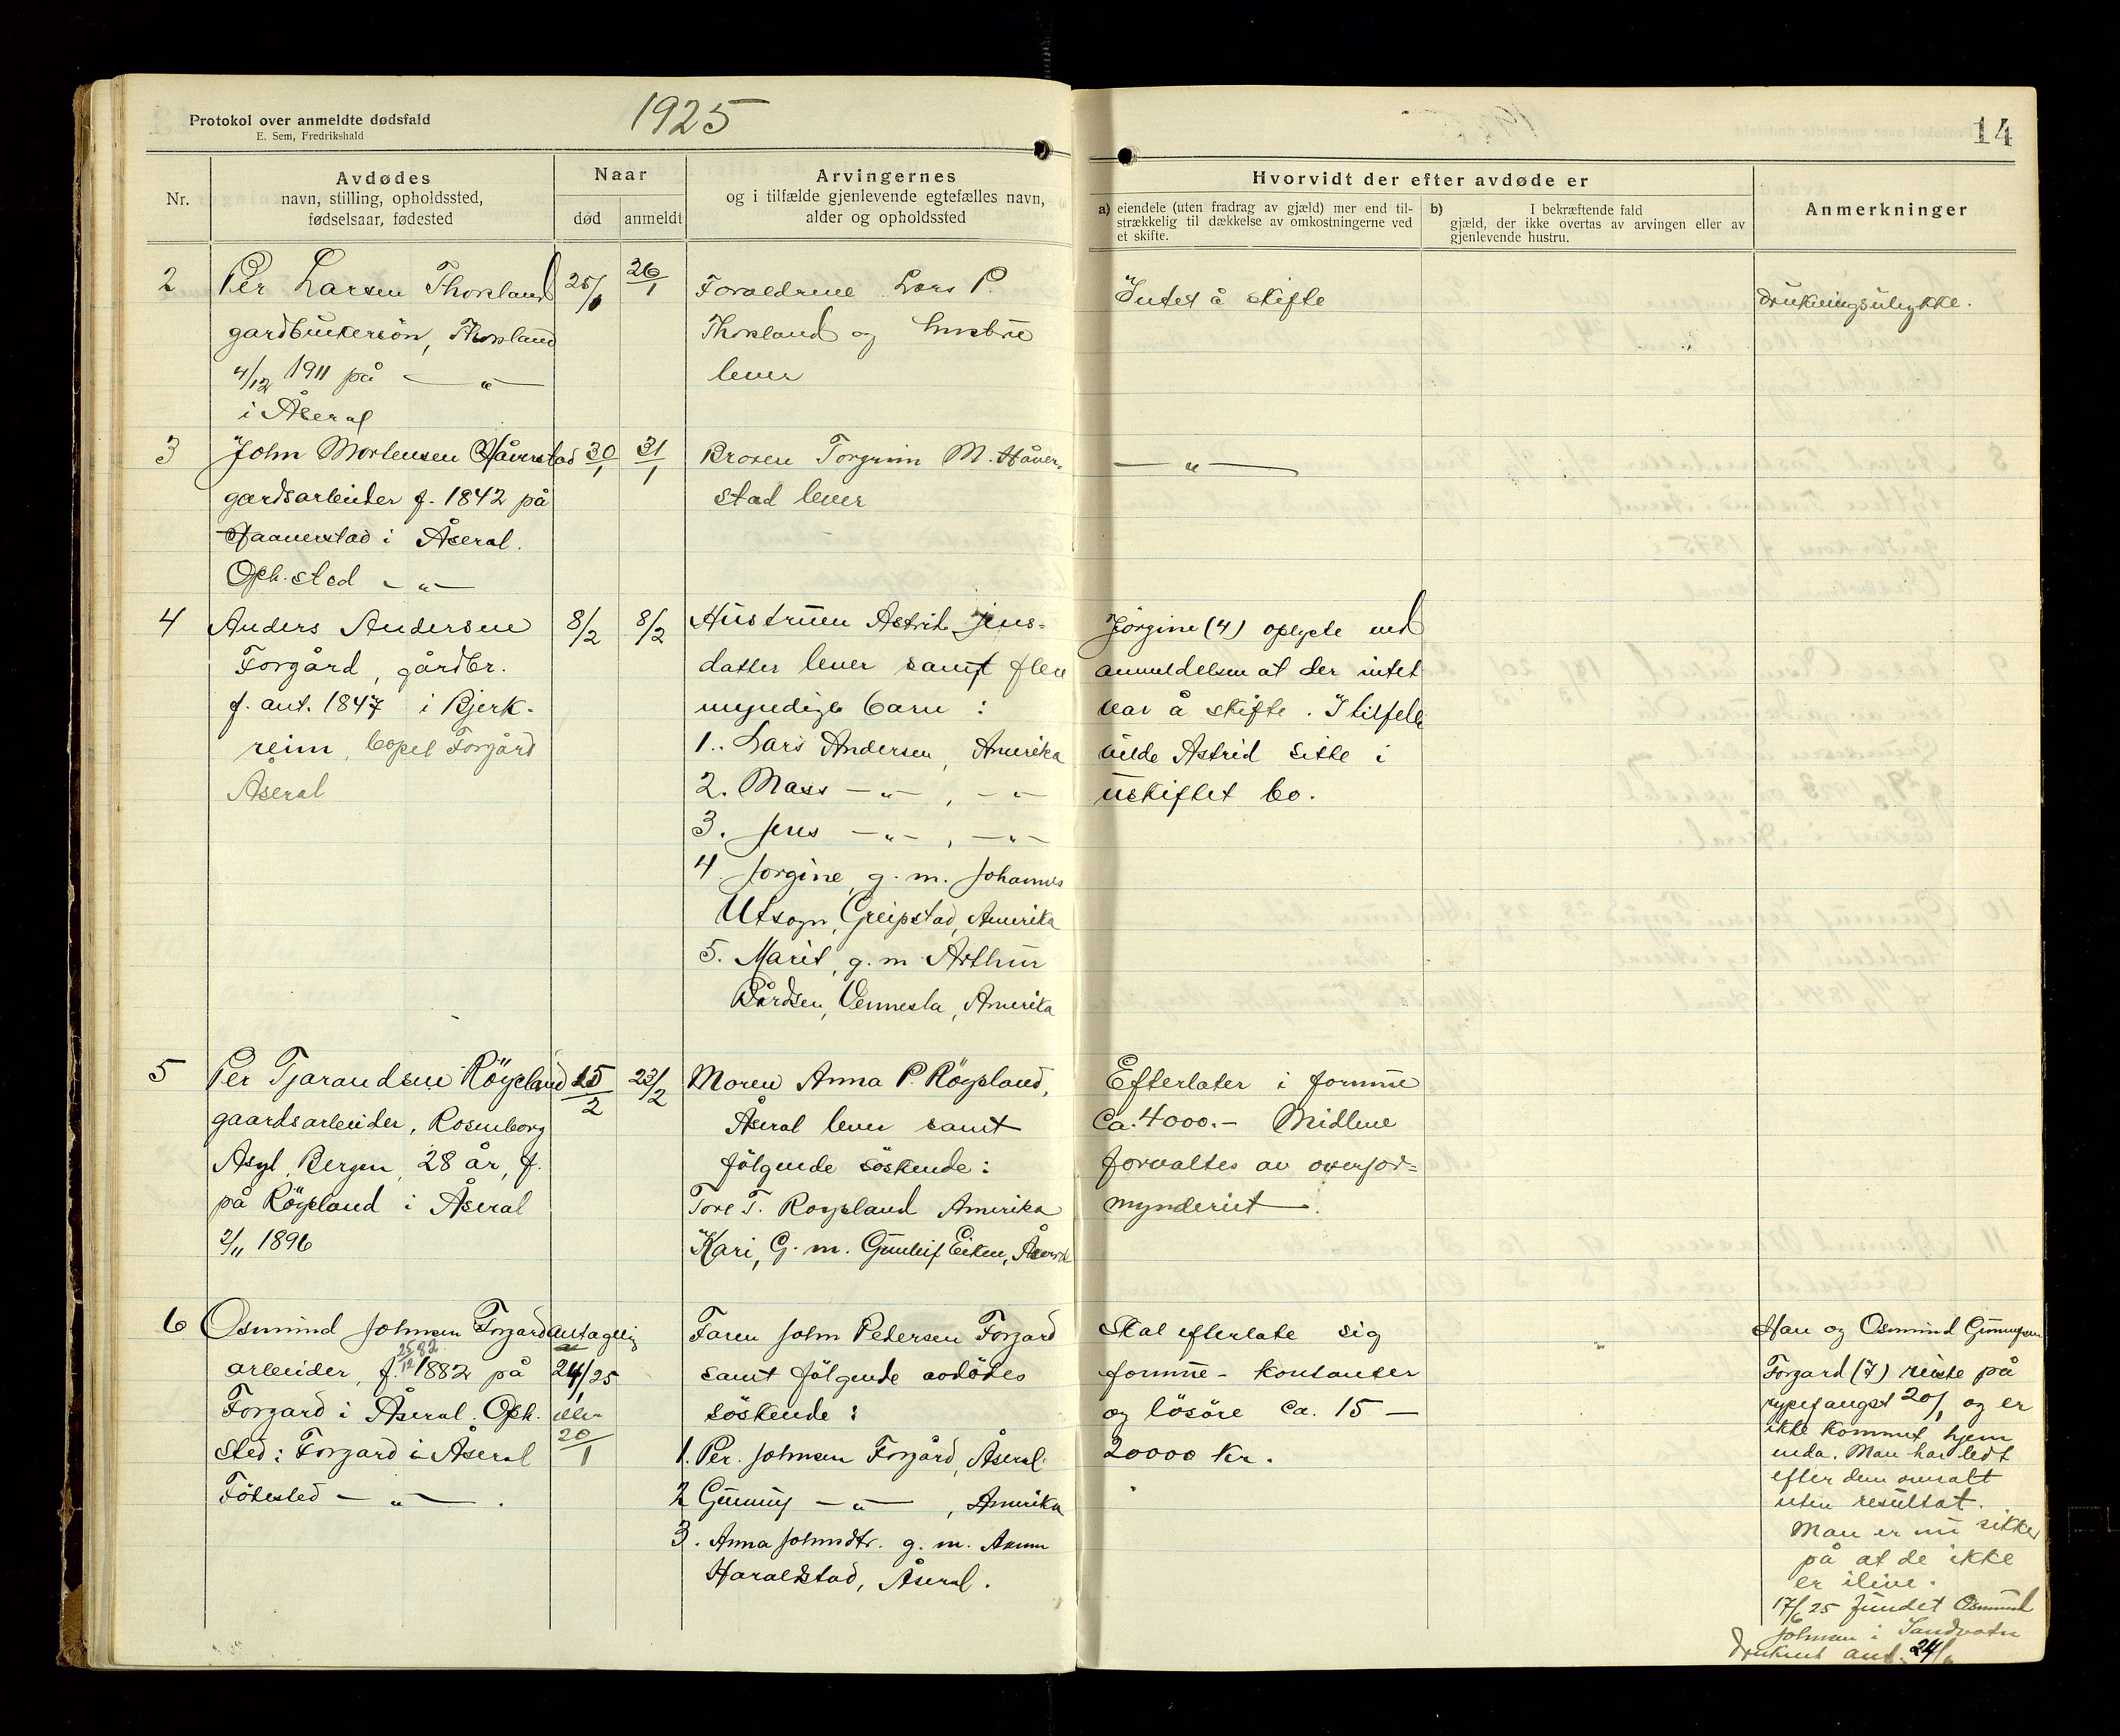 Protokol over anmeldte dødsfald
E. Sem, Fredrikshald
1925
14
Nr.
Avdødes
navn, stilling, opholdssted,
fødselsaar, fødested
Naar
død
anmeldt
Arvingernes
og i tilfælde gjenlevende egtefælles navn,
alder og opholdssted
Hvorvidt der efter avdøde er
a) eiendele (uten fradrag av gjæld) mer end til-
strækkelig til dækkelse av omkostningerne ved
et skifte.
b) I bekræftende fald
gjæld, der ikke overtas av arvingen eller av
gjenlevende hustru.
Anmerkninger
2
Per Larsen Thorsland
gardbrukersön, Thorsland
4/12 1911 på — " —
i Åseral
25/1
26/1
Foraeldrene Lars P.
Thorsland og hustru
lever
Intet å skifte
Drukningsulykke.
3
John Mortensen Håverstad
gardsarbeider f. 1842 på
Haaverstad i Åseral.
Oph.sted — " —
30/1
31/1
Broren Torgrim M. Håver-
stad lever
— " —
4
Anders Andersen
Forgård, gårdbr.
f. ant. 1847 i Bjerk-
reim, bopel Forgård
Åseral
8/2
8/2
Hustruen Astrid Jens-
datter lever samt flere
myndige barn :
1. Lars Andersen, Amerika
2. Mass — " — , — " —
3. Jens — " — , — " —
4. Jorgine, g. m. Johannes
Utsogn, Greipstad, Amerika
5. Marit, g. m. Arthur
Bårdsen, Vennesla, Amerika
Jörgine (4) oplyste ved
anmeldelsen at der intet
var å skifte. I tilfelle
vilde Astrid sitte i
uskiftet bo.
5
Per Tjarandsen Röysland
gaardsarbeider, Rosenborg
Asyl, Bergen, 28 år, f.
på Röysland i Åseral
2/11 1896
15/2
23/2
Moren Anna P. Röysland,
Åseral lever samt
følgende söskende:
Tore T. Roysland Amerika
Kari, G. m. Gunleif Eiken, Åseral
Efterlater i formue
ca. 4000.- Midlene
forvaltes av overfor-
mynderiet.
6
Osmund Johnsen Forgard
arbeider, f. 25/12 82 1882 på
Forgard i Åseral. Oph.
sted: Forgard i Åseral
Födested — " — .
antagelig
24/1 25
eller
20/1
Faren John Pedersen Forgard
samt fölgende avdödes
söskende :
1. Per Johnsen Forgård, Åseral.
2 Gunnuf — " — , Amerika
3. Anna Johnsdtr. g. m.
Haraldstad, Åseral.
Skal efterlate sig
formue - kontanter
og lösöre ca. 15 —
20000 kr.
Han og Osmund Gunnufsen
Forgard (7) reiste på
rypefangst 20/1 og er
ikke kommet hjem
enda. Man har ledt
efter dem overalt
uten resultat.
Man er nu sikker
på at de ikke
er ilive.
17/6 25 fundet Osmund
Johnsen i Sandvatn
druknet ant. 24/1